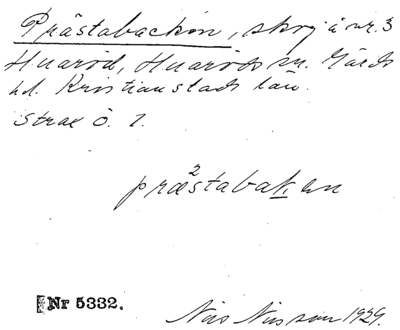 Prästabacken, skog i nr. 3
Huaröd, Huaröds sn. Gärds
hd. Kristianstads län.
Strax ö. 1.
præ²stabak̲en
Nr 5332.
Nils Nilsson 1929.